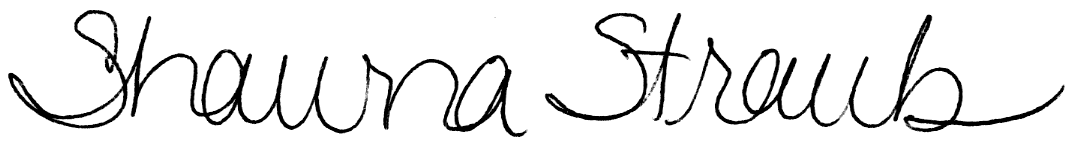 Shawna Straub